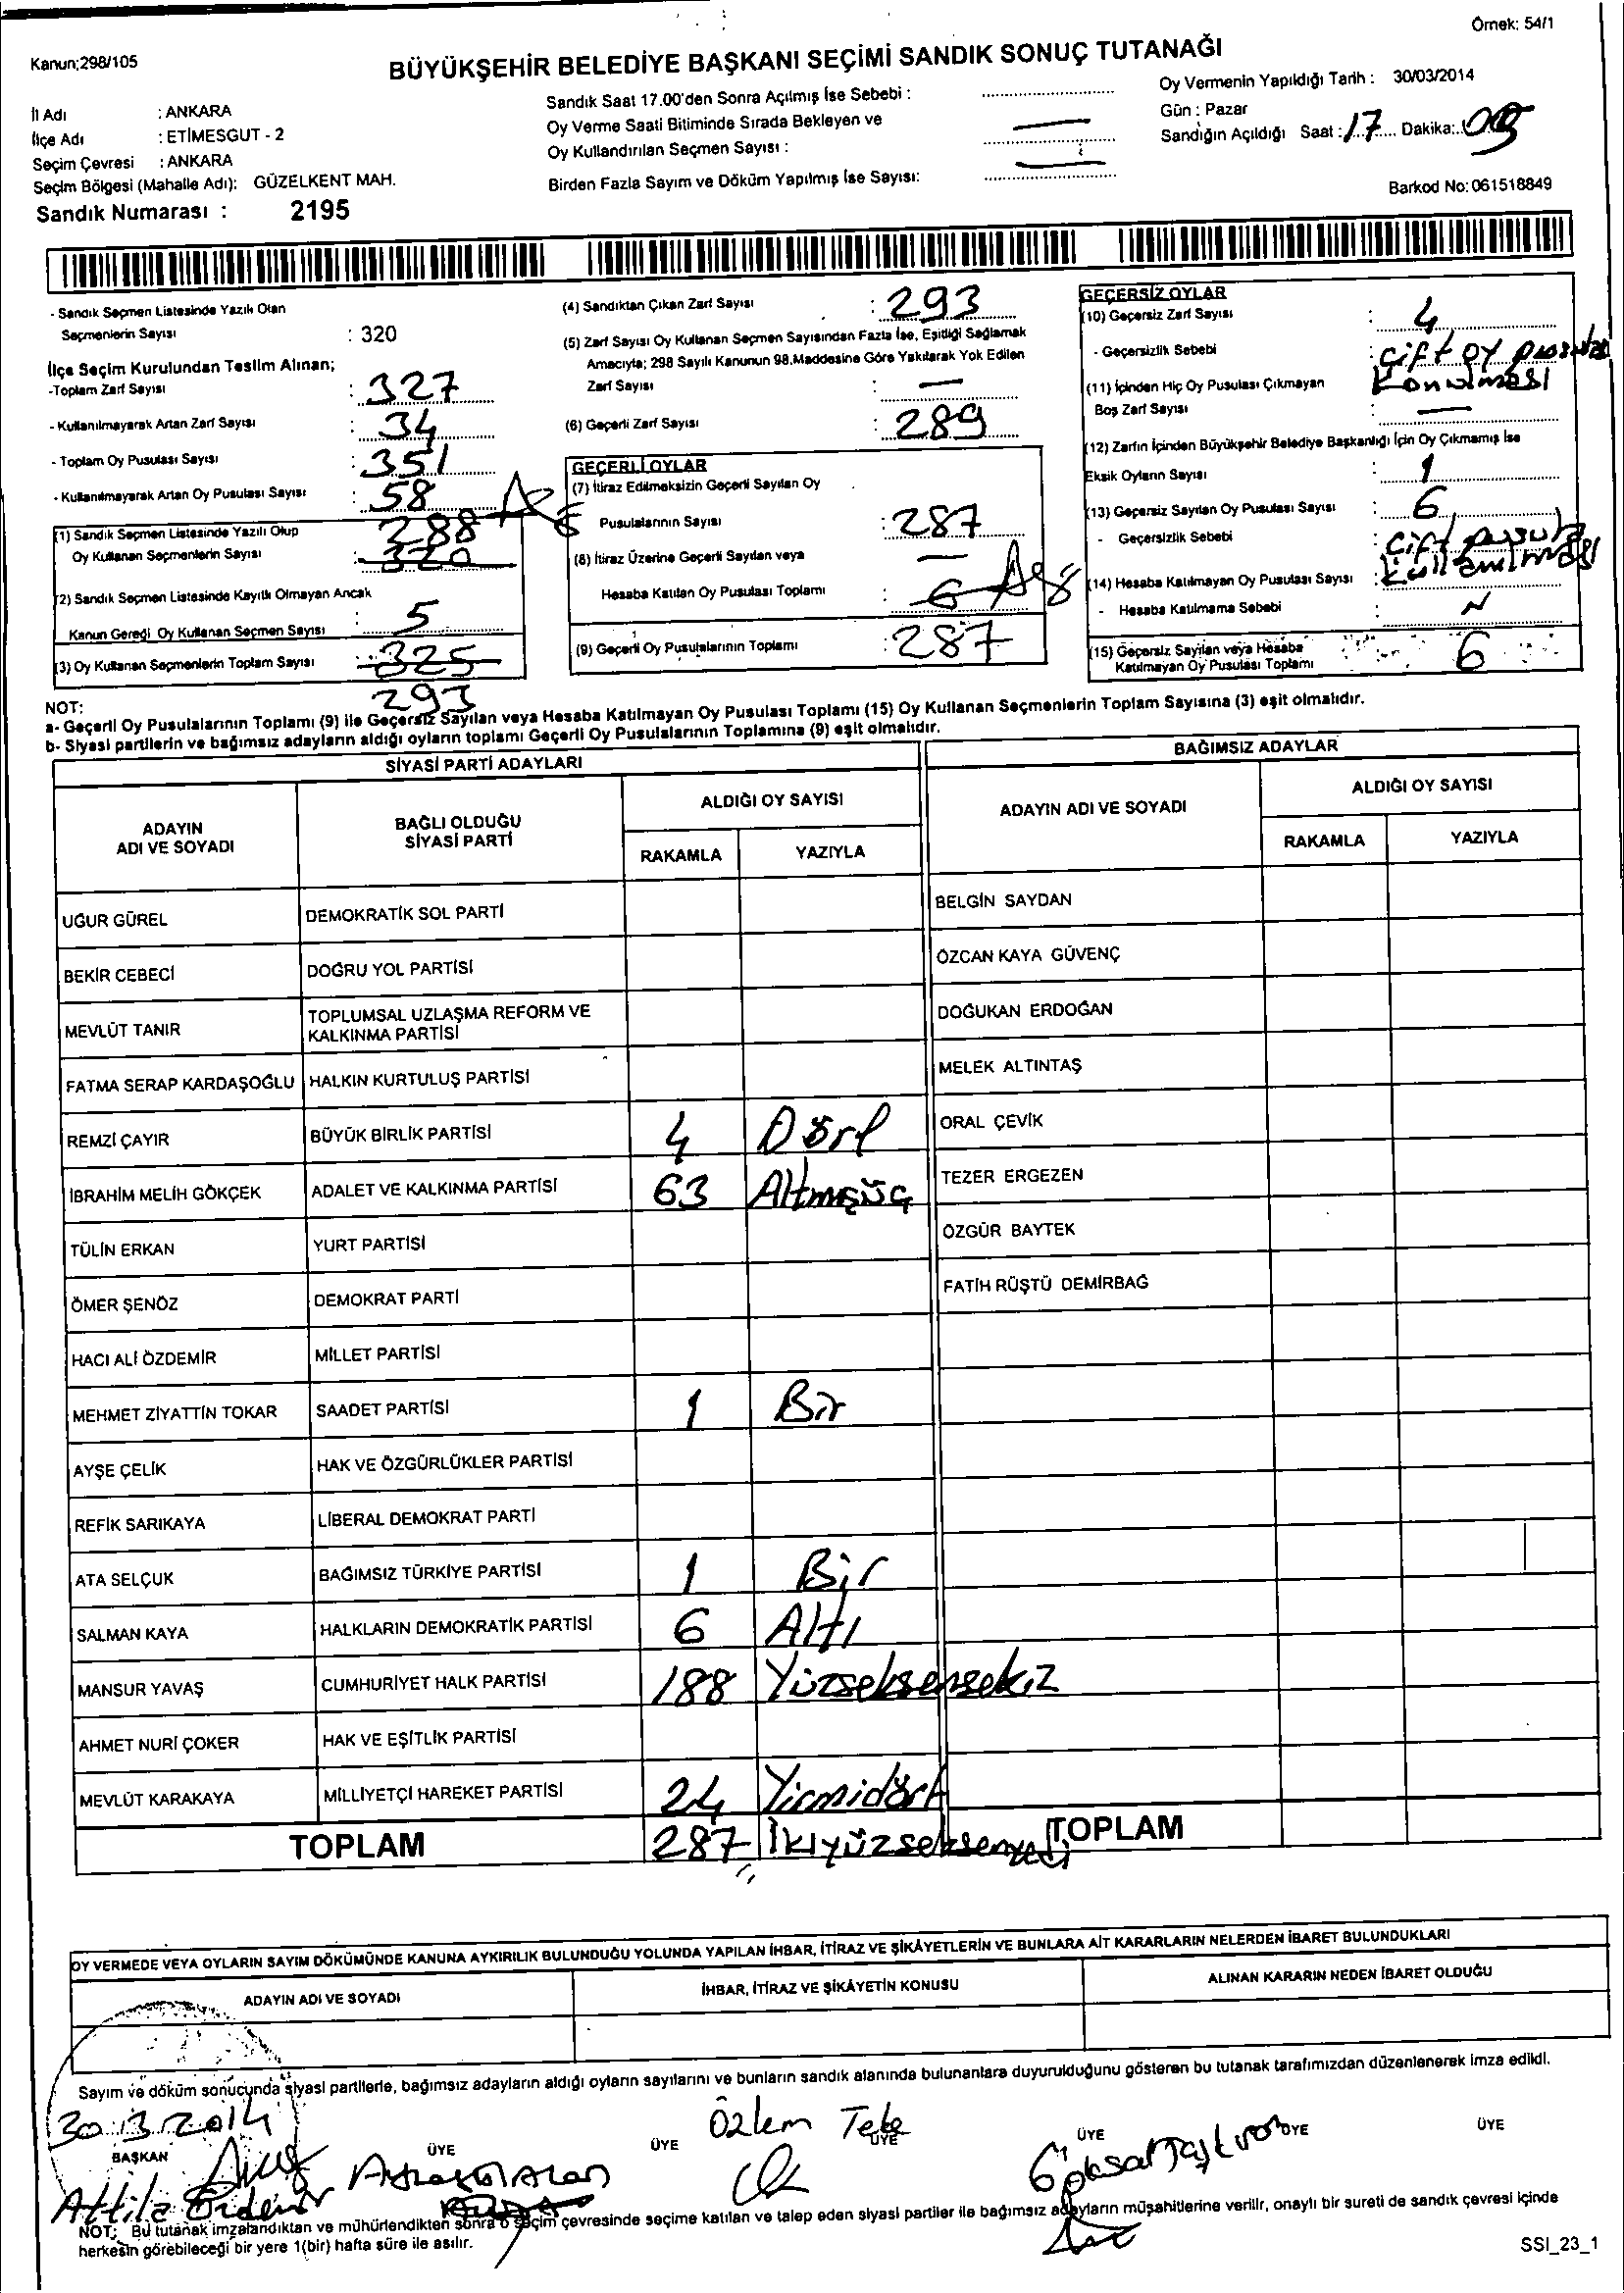 Örnek: 54/1
Kanun;298/105
BÜYÜKŞEHİR BELEDİYE BAŞKANI SEÇİMİ SANDIK SONUÇ TUTANAĞI
İl Adı : ANKARA
İlçe Adı : ETİMESGUT - 2
Seçim Çevresi : ANKARA
Seçim Bölgesi (Mahalle Adı): GÜZELKENT MAH.
Sandık Numarası : 2195
Sandık Saat 17.00'den Sonra Açılmış İse Sebebi :
Oy Verme Saati Bitiminde Sırada Bekleyen ve
Oy Kullandırılan Seçmen Sayısı :
Birden Fazla Sayım ve Döküm Yapılmış İse Sayısı:
Oy Vermenin Yapıldığı Tarih : 30/03/2014
Gün : Pazar
Sandığın Açıldığı Saat : 17 Dakika:
Barkod No: 061518849
- Sandık Seçmen Listesinde Yazılı Olan
Seçmenlerin Sayısı : 320
İlçe Seçim Kurulundan Teslim Alınan;
-Toplam Zarf Sayısı : 327
- Kullanılmayarak Artan Zarf Sayısı : 34
- Toplam Oy Pusulası Sayısı : 351
- Kullanılmayarak Artan Oy Pusulası Sayısı : 58
(1) Sandık Seçmen Listesinde Yazılı Olup 288
Oy Kullanan Seçmenlerin Sayısı : 320
(2) Sandık Seçmen Listesinde Kayıtlı Olmayan Ancak
Kanun Gereği Oy Kullanan Seçmen Sayısı : 5
(3) Oy Kullanan Seçmenlerin Toplam Sayısı : 325
293
(4) Sandıktan Çıkan Zarf Sayısı : 293
(5) Zarf Sayısı Oy Kullanan Seçmen Sayısından Fazla İse, Eşitliği Sağlamak
Amacıyla; 298 Sayılı Kanunun 98.Maddesine Göre Yakılarak Yok Edilen
Zarf Sayısı : —
(6) Geçerli Zarf Sayısı : 289
GEÇERLİ OYLAR
(7) İtiraz Edilmeksizin Geçerli Sayılan Oy
Pusulalarının Sayısı : 287
(8) İtiraz Üzerine Geçerli Sayılan veya —
Hesaba Katılan Oy Pusulası Toplamı : 6
(9) Geçerli Oy Pusulalarının Toplamı : 287
GEÇERSİZ OYLAR
(10) Geçersiz Zarf Sayısı : 4
- Geçersizlik Sebebi : Çift oy pusula
konulması
(11) İçinden Hiç Oy Pusulası Çıkmayan
Boş Zarf Sayısı : —
(12) Zarfın İçinden Büyükşehir Belediye Başkanlığı İçin Oy Çıkmamış İse
Eksik Oyların Sayısı : 1
(13) Geçersiz Sayılan Oy Pusulası Sayısı : 6
- Geçersizlik Sebebi : Çift pusula
kullanılması
(14) Hesaba Katılmayan Oy Pusulası Sayısı :
- Hesaba Katılmama Sebebi :
(15) Geçersiz Sayılan veya Hesaba
Katılmayan Oy Pusulası Toplamı : 6
NOT:
a- Geçerli Oy Pusulalarının Toplamı (9) ile Geçersiz Sayılan veya Hesaba Katılmayan Oy Pusulası Toplamı (15) Oy Kullanan Seçmenlerin Toplam Sayısına (3) eşit olmalıdır.
b- Siyasi partilerin ve bağımsız adayların aldığı oyların toplamı Geçerli Oy Pusulalarının Toplamına (9) eşit olmalıdır.
SİYASİ PARTİ ADAYLARI
ADAYIN ADI VE SOYADI
BAĞLI OLDUĞU SİYASİ PARTİ
ALDIĞI OY SAYISI
RAKAMLA YAZIYLA
UĞUR GÜREL DEMOKRATİK SOL PARTİ
BEKİR CEBECİ DOĞRU YOL PARTİSİ
MEVLÜT TANIR TOPLUMSAL UZLAŞMA REFORM VE
KALKINMA PARTİSİ
FATMA SERAP KARDAŞOĞLU HALKIN KURTULUŞ PARTİSİ
REMZİ ÇAYIR BÜYÜK BİRLİK PARTİSİ 4 Dört
İBRAHİM MELİH GÖKÇEK ADALET VE KALKINMA PARTİSİ 63 Altmışüç
TÜLİN ERKAN YURT PARTİSİ
ÖMER ŞENÖZ DEMOKRAT PARTİ
HACI ALİ ÖZDEMİR MİLLET PARTİSİ
MEHMET ZİYATTİN TOKAR SAADET PARTİSİ 1 Bir
AYŞE ÇELİK HAK VE ÖZGÜRLÜKLER PARTİSİ
REFİK SARIKAYA LİBERAL DEMOKRAT PARTİ
ATA SELÇUK BAĞIMSIZ TÜRKİYE PARTİSİ 1 Bir
SALMAN KAYA HALKLARIN DEMOKRATİK PARTİSİ 6 Altı
MANSUR YAVAŞ CUMHURİYET HALK PARTİSİ 188 Yüzseksensekiz
AHMET NURİ ÇOKER HAK VE EŞİTLİK PARTİSİ
MEVLÜT KARAKAYA MİLLİYETÇİ HAREKET PARTİSİ 24 Yirmidört
TOPLAM 287 İkiyüzseksenyedi
BAĞIMSIZ ADAYLAR
ADAYIN ADI VE SOYADI
ALDIĞI OY SAYISI
RAKAMLA YAZIYLA
BELGİN SAYDAN
ÖZCAN KAYA GÜVENÇ
DOĞUKAN ERDOĞAN
MELEK ALTINTAŞ
ORAL ÇEVİK
TEZER ERGEZEN
ÖZGÜR BAYTEK
FATİH RÜŞTÜ DEMİRBAĞ
TOPLAM
OY VERMEDE VEYA OYLARIN SAYIM DÖKÜMÜNDE KANUNA AYKIRILIK BULUNDUĞU YOLUNDA YAPILAN İHBAR, İTİRAZ VE ŞİKÂYETLERİN VE BUNLARA AİT KARARLARIN NELERDEN İBARET BULUNDUKLARI
ADAYIN ADI VE SOYADI İHBAR, İTİRAZ VE ŞİKÂYETİN KONUSU ALINAN KARARIN NEDEN İBARET OLDUĞU
Sayım ve döküm sonucunda siyasi partilerle, bağımsız adayların aldığı oyların sayılarını ve bunların sandık alanında bulunanlara duyurulduğunu gösteren bu tutanak tarafımızdan düzenlenerek imza edildi.
30.3.2014 Özlem
BAŞKAN ÜYE ÜYE ÜYE ÜYE ÜYE ÜYE
Attila
NOT: Bu tutanak imzalandıktan ve mühürlendikten sonra o seçim çevresinde seçime katılan ve talep eden siyasi partiler ile bağımsız adayların müşahitlerine verilir, onaylı bir sureti de sandık çevresi içinde
herkesin görebileceği bir yere 1(bir) hafta süre ile asılır.
SSI_23_1